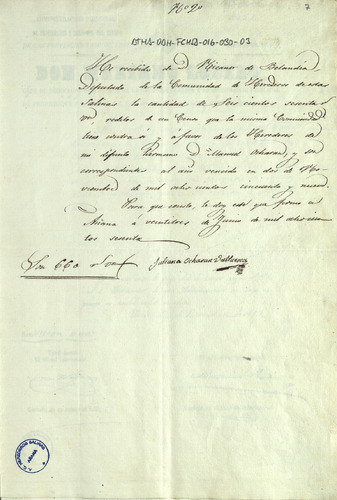 Nº 20
7
ATHA-DAH-FCHLB-016-030-03
He recibido de D. Nicanor de Belandia,
Diputado de la Comunidad de Herederos de estas
Salinas la cantidad de Seis cientos sesenta
rs. reditos de un Censo que la misma Comunidad
tiene contra sí y á favor de los Herederos de
mi difunto Hermano D. Manuel Ocharan, y son
correspondientes al año vencido en dos de No-
viembre de mil ochocientos cincuenta y nueve.
Para que conste, le doy este que firmo en
Añana á veintitres de Junio de mil ochocien-
tos sesenta
Son 660 rs.
Juliana Ocharan Vallueca
AÑANA